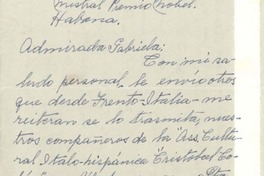 Mistral Premio Nobel.
Habana.
Admirada Gabriela:
Con mi sa-
ludo personal, le envío otros
que desde Trento-Italia-me
reiteran se lo trasmita, nues-
tros compañeros de la "Ass. Cultu-
ral Italo-hispánica "Cristóbal Co-